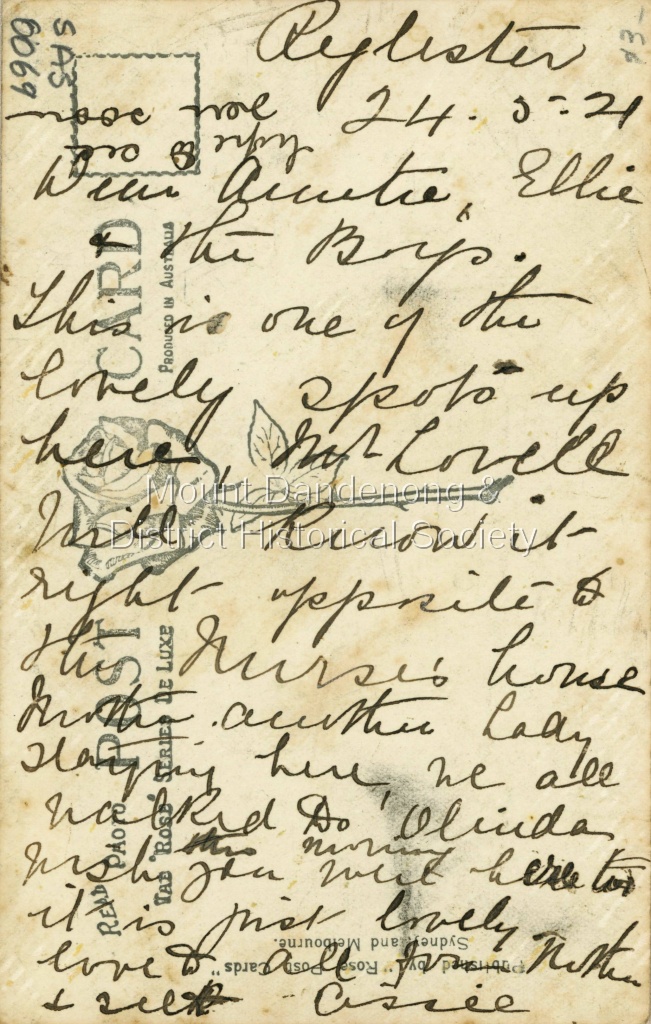 Reglister
24-5-21
Dear Auntie, Ellie
& the Boys.
This is one of the
lovely spots up
here, Mr Lovell
will Know it
right opposite to
the Nurse's house
Mother another Lady
staying here, we all
walked to Olinda
this morning
wish you were here too
it is just lovely
love to all from Mother
& self Cissie
hope to see
you soon
SAS
6069
13-
POST CARD
PRODUCED IN AUSTRALIA
REAL PHOTO
THE "ROSE" SERIES DE LUXE
Published by "Rose Post Cards"
Sydney, and Melbourne.
Mount Dandenong &
District Historical Society